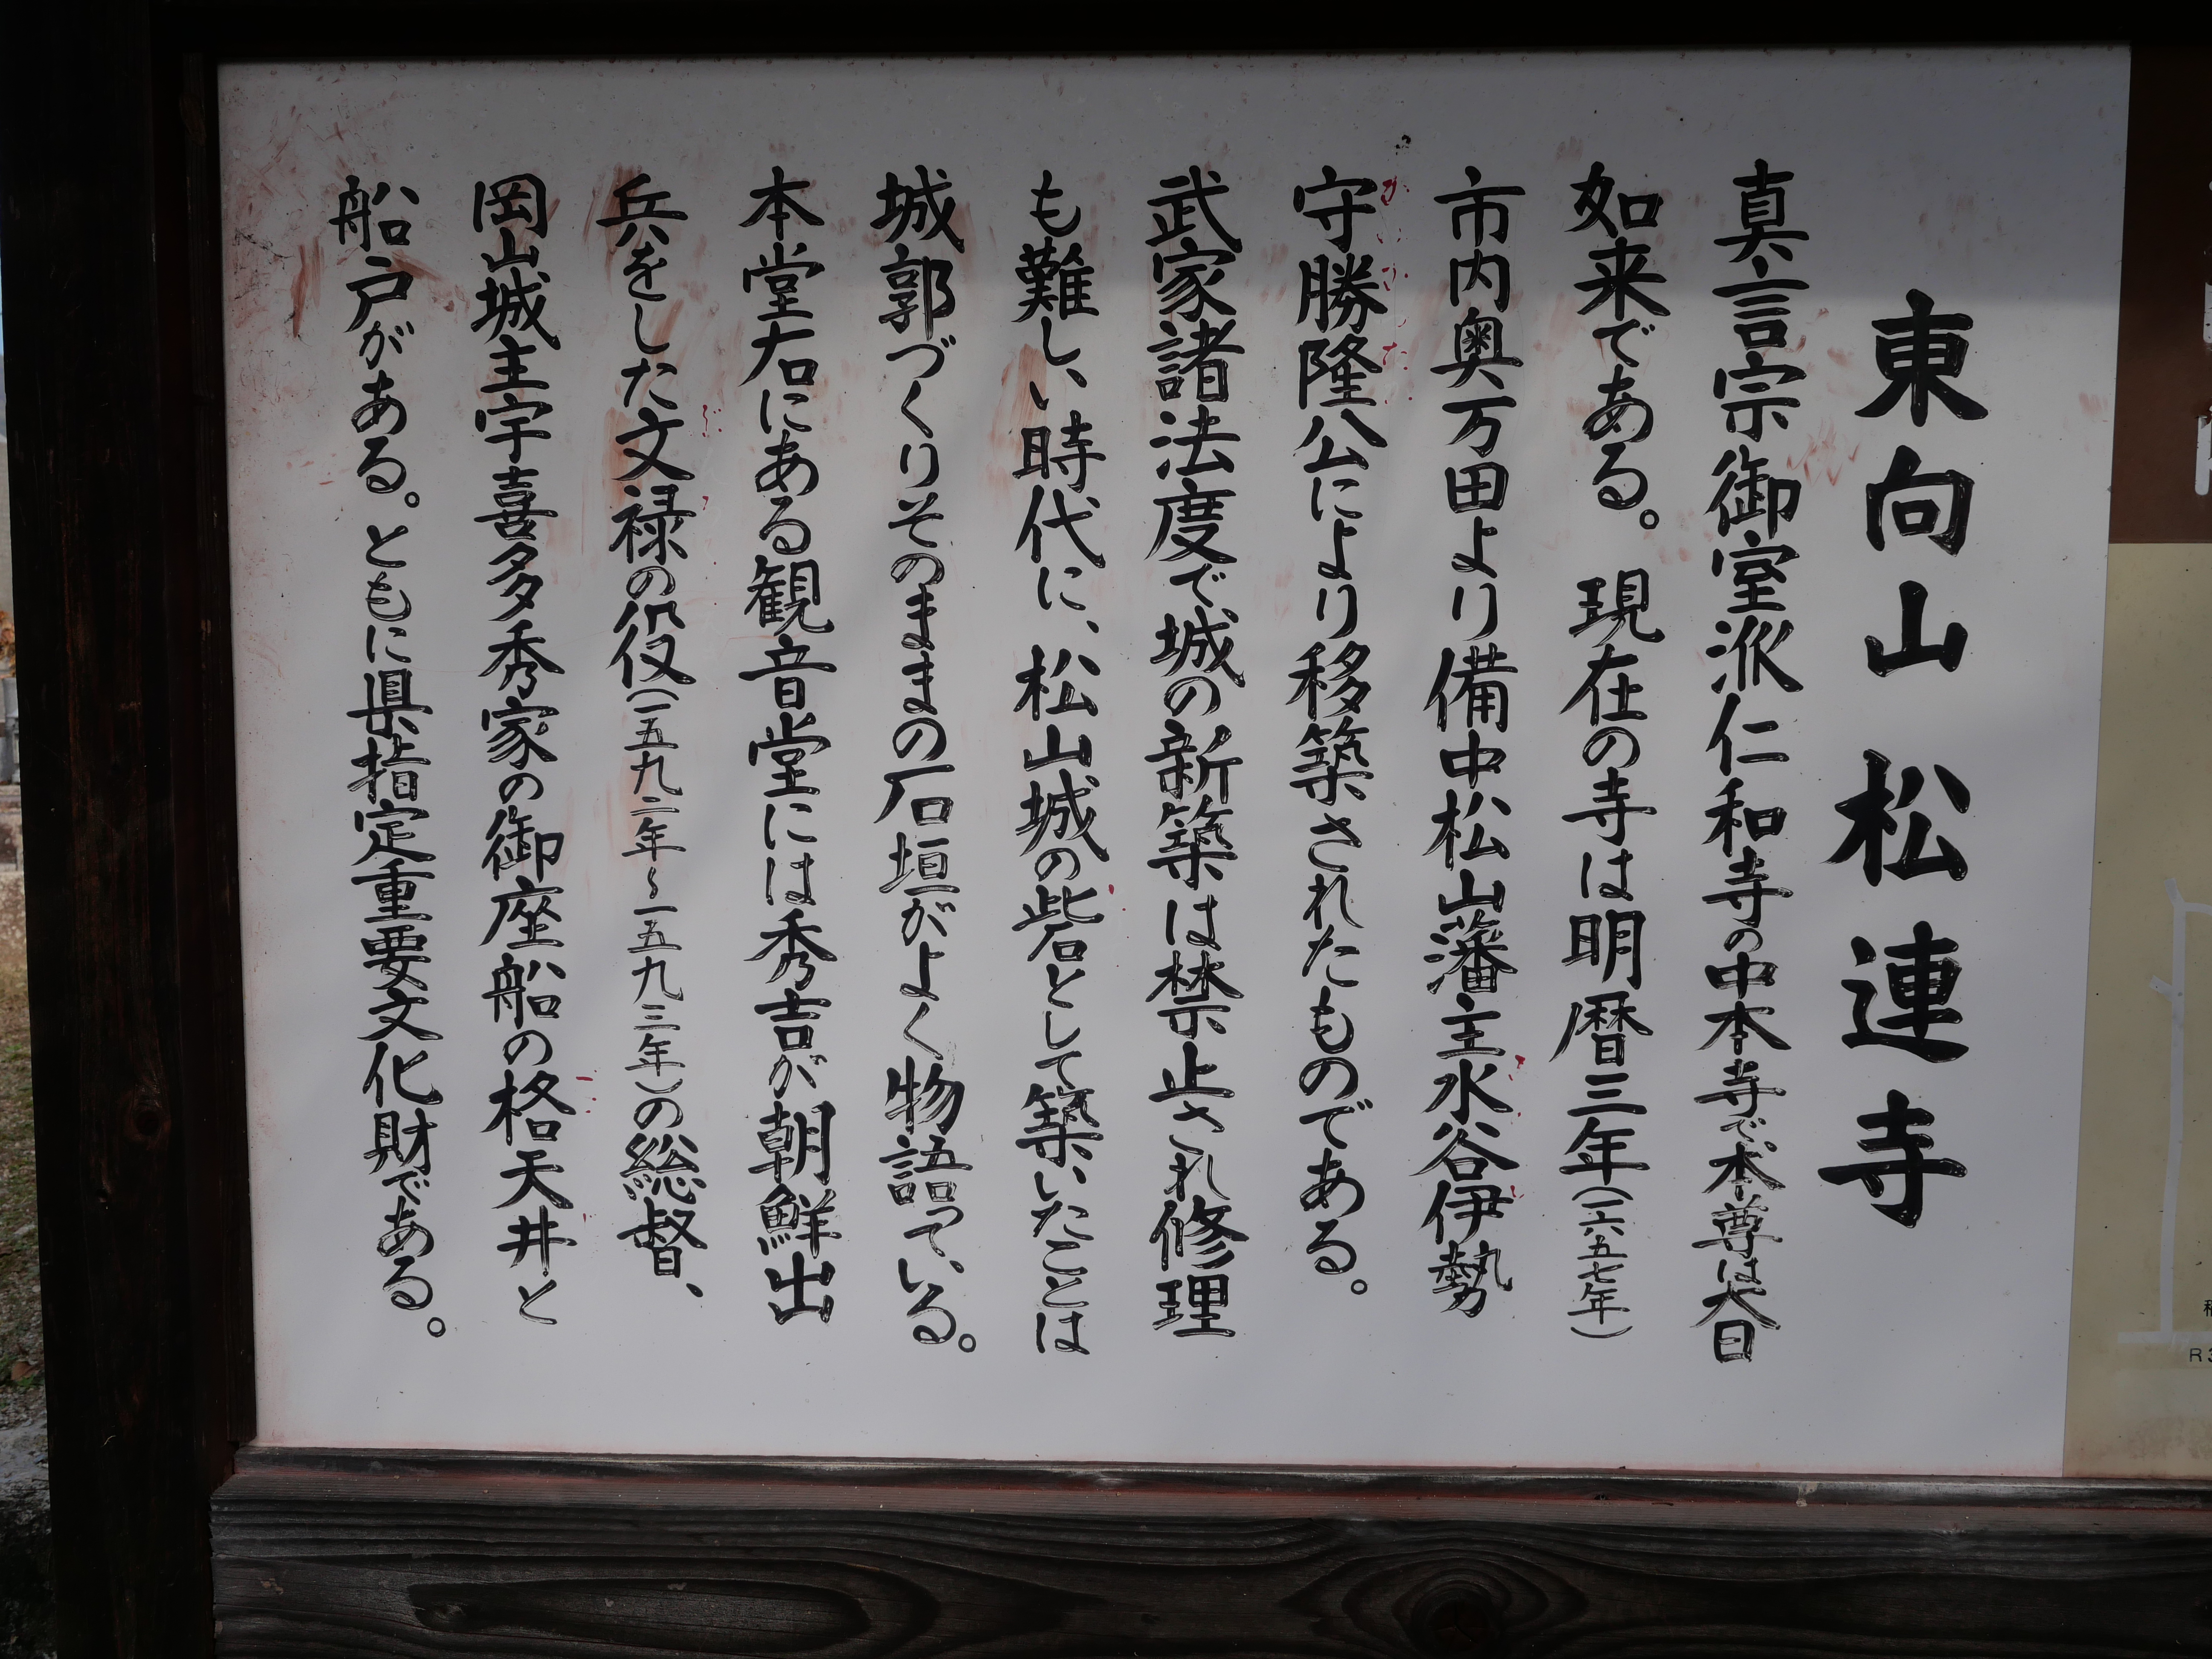 東向山 松連寺
真言宗御室派仁和寺の中本寺で本尊は大日
如来である。 現在の寺は明暦三年(一六五七年)
市内奥万田より備中松山藩主水谷伊勢
守勝隆公により移築されたものである。
武家諸法度で城の新築は禁止され修理
も難しい時代に、松山城の砦として築いたことは
城郭づくりそのままの石垣がよく物語っている。
本堂右にある観音堂には秀吉が朝鮮出
兵をした文禄の役(一五九二年~一五九三年)の総督、
岡山城主宇喜多秀家の御座船の格天井と
船戸がある。ともに県指定重要文化財である。